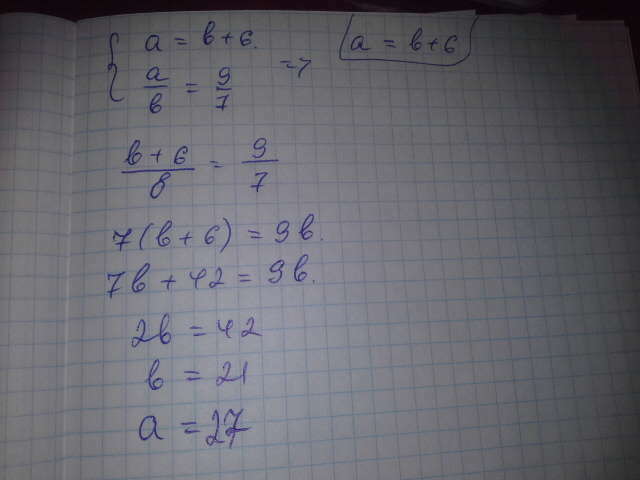 a = b+6. => a = b+6
a/b = 9/7
b+6/b = 9/7
7(b+6) = 9b.
7b+42 = 9b.
2b = 42
b = 21
a = 27